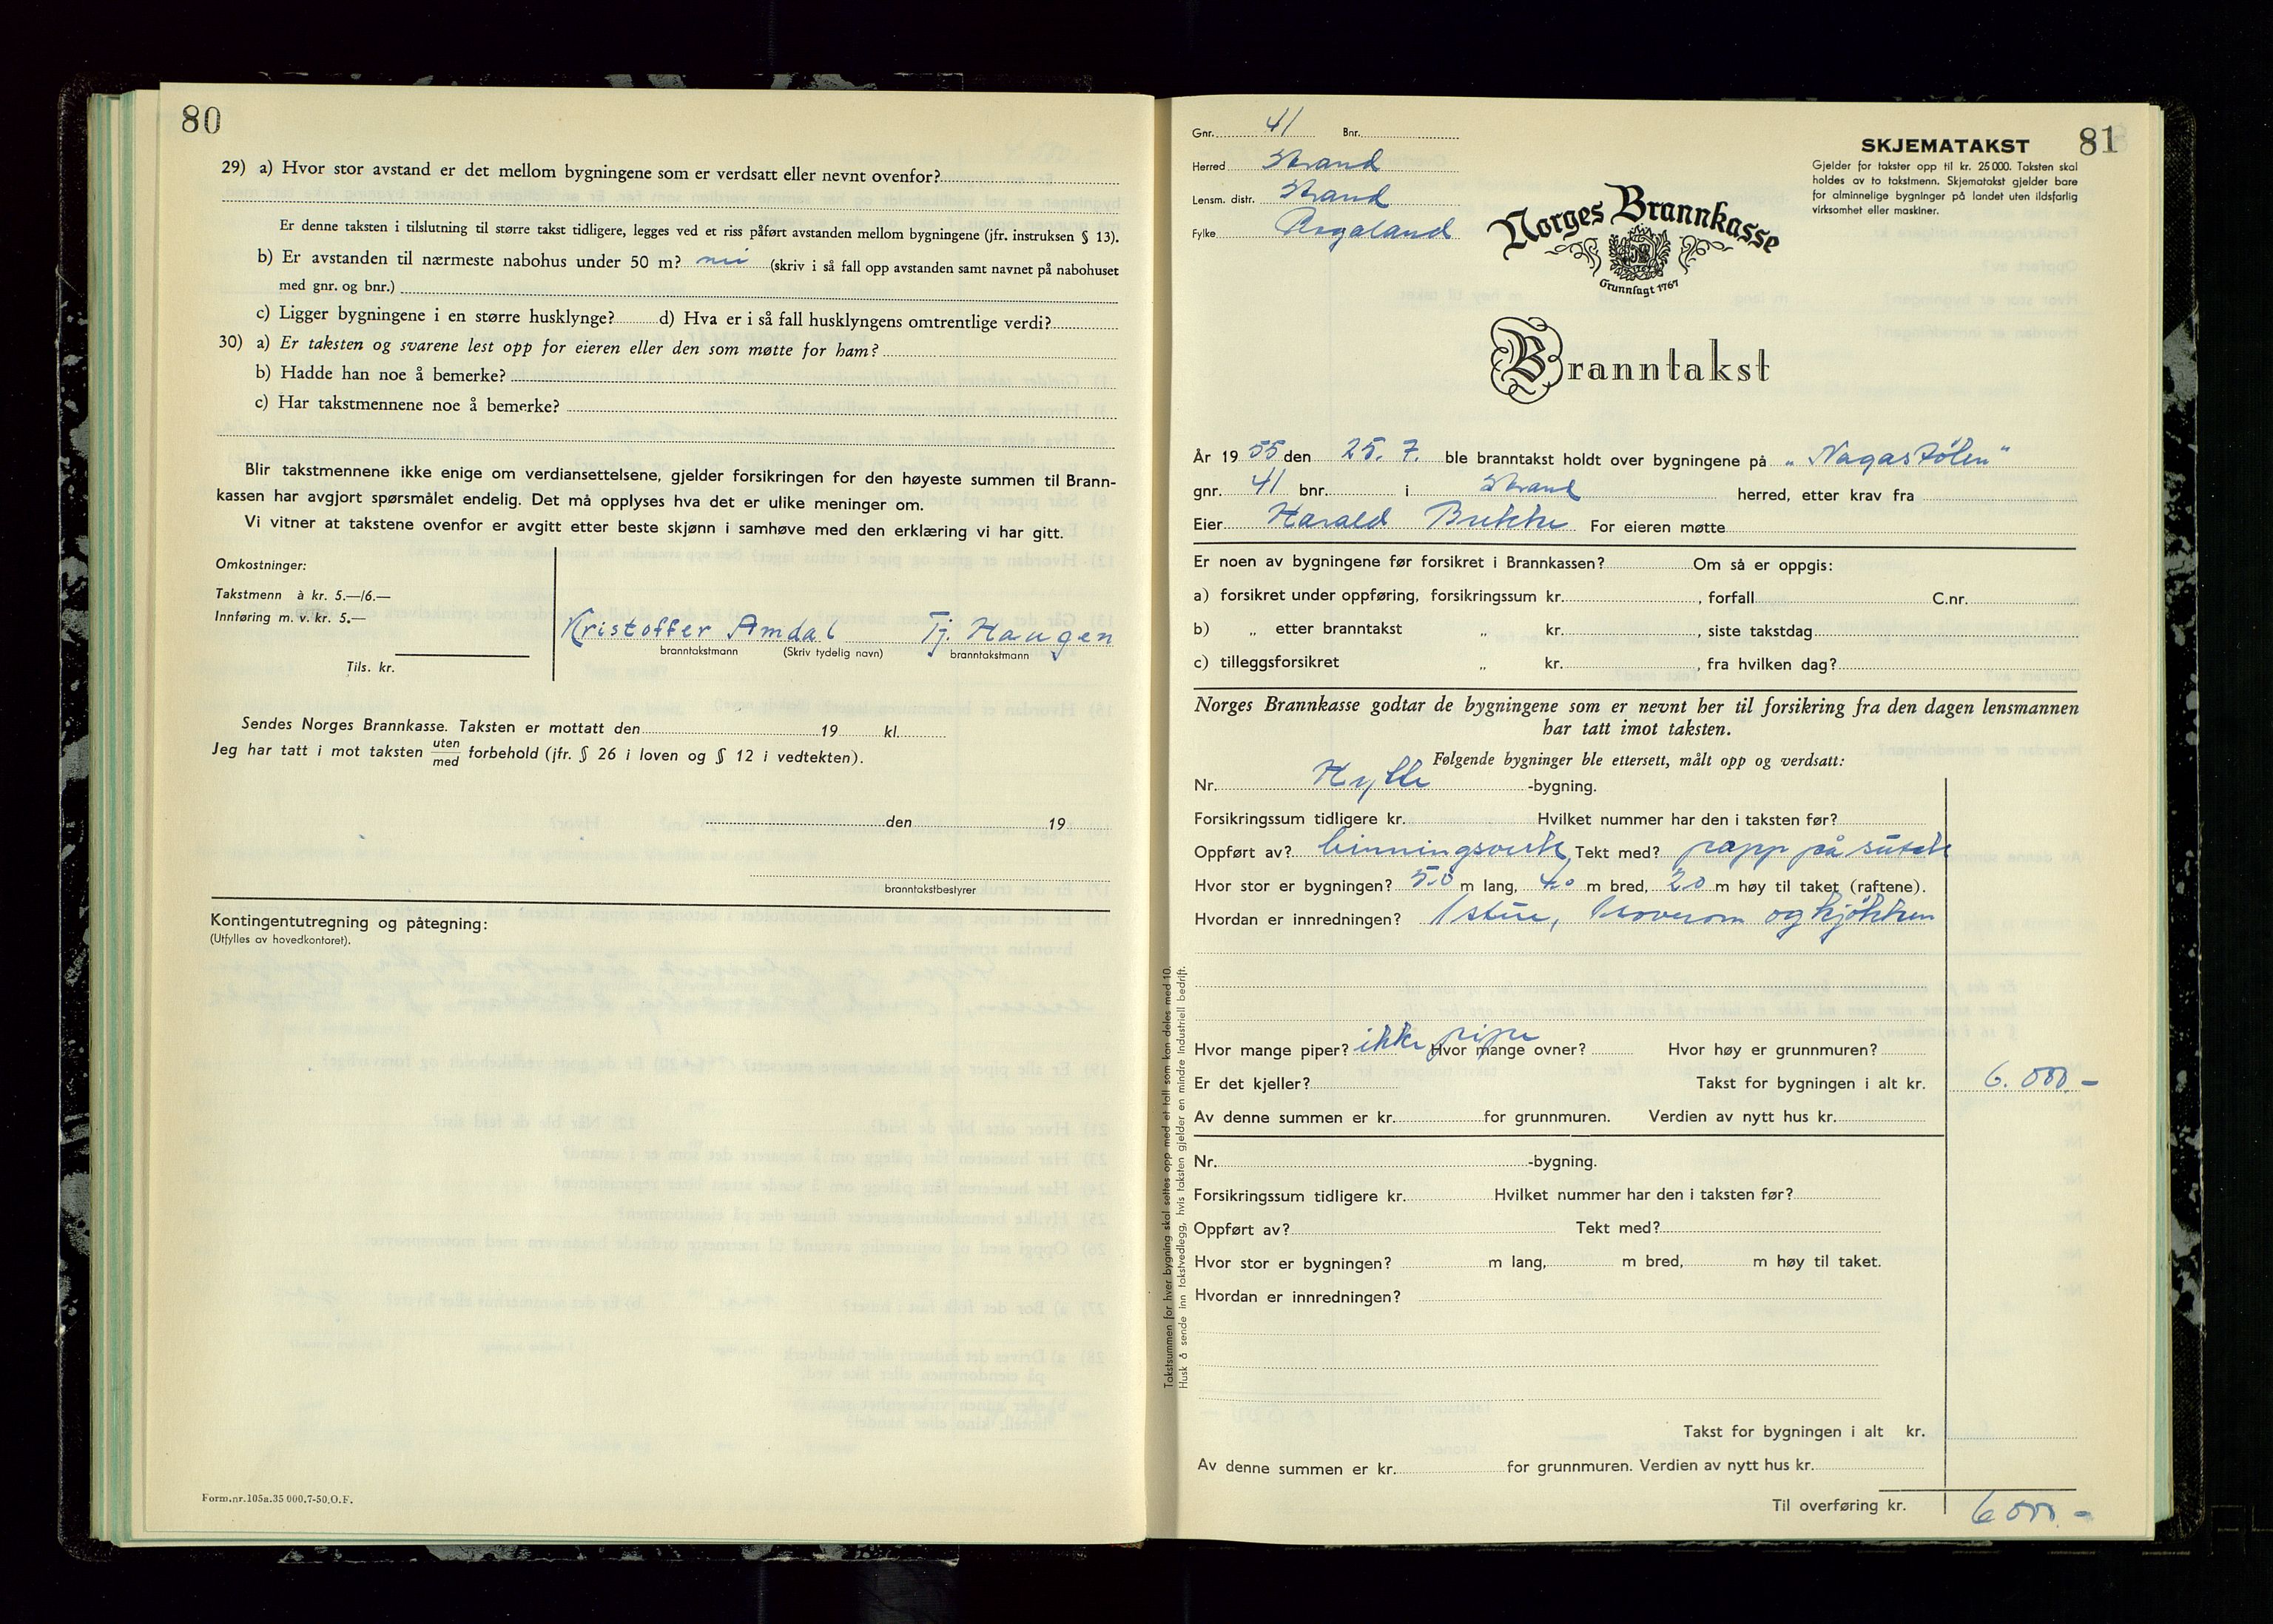 80
29) a) Hvor stor avstand er det mellom bygningene som er verdsatt eller nevnt ovenfor?
Er denne taksten i tilslutning til større takst tidligere, legges ved et riss påført avstanden mellom bygningene (jfr. instruksen § 13).
b) Er avstanden til nærmeste nabohus under 50 m? nei (skriv i så fall opp avstanden samt navnet på nabohuset
med gnr. og bnr.)
c) Ligger bygningene i en større husklynge? d) Hva er i så fall husklyngens omtrentlige verdi?
30) a) Er taksten og svarene lest opp for eieren eller den som møtte for ham?
b) Hadde han noe å bemerke?
c) Har takstmennene noe å bemerke?
Blir takstmennene ikke enige om verdiansettelsene, gjelder forsikringen for den høyeste summen til Brann-
kassen har avgjort spørsmålet endelig. Det må opplyses hva det er ulike meninger om.
Vi vitner at takstene ovenfor er avgitt etter beste skjønn i samhøve med den erklæring vi har gitt.
Omkostninger:
Takstmenn à kr. 5.—/6.—
Innføring m. v. kr. 5.—
Tils. kr.
Kristoffer Amdal Tj. Haugen
branntakstmann (Skriv tydelig navn) branntakstmann
Sendes Norges Brannkasse. Taksten er mottatt den 19 kl.
Jeg har tatt i mot taksten uten
med forbehold (jfr. § 26 i loven og § 12 i vedtekten).
den 19
branntakstbestyrer
Kontingentutregning og påtegning:
(Utfylles av hovedkontoret).
Form.nr.105a.35 000.7-50.O.F.
Gnr. 41 Bnr.
Herred Strand
Lensm. distr. Strand
Fylke Rogaland
SKJEMATAKST 81
Gjelder for takster opp til kr. 25 000. Taksten skal
holdes av to takstmenn. Skjematakst gjelder bare
for alminnelige bygninger på landet uten ildsfarlig
virksomhet eller maskiner.
Norges Brannkasse
Grunnlagt 1767
Branntakst
År 1955 den 25. 7. ble branntakst holdt over bygningene på „Nagastølen"
gnr. 41 bnr. i Strand herred, etter krav fra
Eier Harald For eieren møtte
Er noen av bygningene før forsikret i Brannkassen? Om så er oppgis:
a) forsikret under oppføring, forsikringssum kr. , forfall C.nr.
b) „ etter branntakst „ kr. , siste takstdag
c) tilleggsforsikret „ kr. , fra hvilken dag?
Norges Brannkasse godtar de bygningene som er nevnt her til forsikring fra den dagen lensmannen
har tatt imot taksten.
Følgende bygninger ble ettersett, målt opp og verdsatt:
Nr. Hytte -bygning.
Forsikringssum tidligere kr. Hvilket nummer har den i taksten før?
Oppført av? binningsverk Tekt med? papp på sutak
Hvor stor er bygningen? 5.0 m lang, 4.0 m bred, 2.0 m høy til taket (raftene).
Hvordan er innredningen? 1 stue, 1 soverom og kjøkken
Hvor mange piper? ikke pipe Hvor mange ovner? Hvor høy er grunnmuren?
Er det kjeller? Takst for bygningen i alt kr. 6.000.-
Av denne summen er kr. for grunnmuren. Verdien av nytt hus kr.
Nr. -bygning.
Forsikringssum tidligere kr. Hvilket nummer har den i taksten før?
Oppført av? Tekt med?
Hvor stor er bygningen? m lang, m bred, m høy til taket.
Hvordan er innredningen?
Takst for bygningen i alt kr.
Av denne summen er kr. for grunnmuren. Verdien av nytt hus kr.
Til overføring kr. 6000.-
Takstsummen for hver bygning skal settes opp med et tall som kan deles med 10.
Husk å sende inn takstvedlegg, hvis taksten gjelder en mindre industriell bedrift.